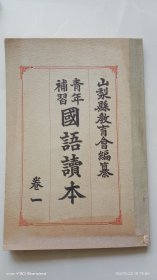 山梨縣教育會編纂
青年補習
國語讀本
卷一